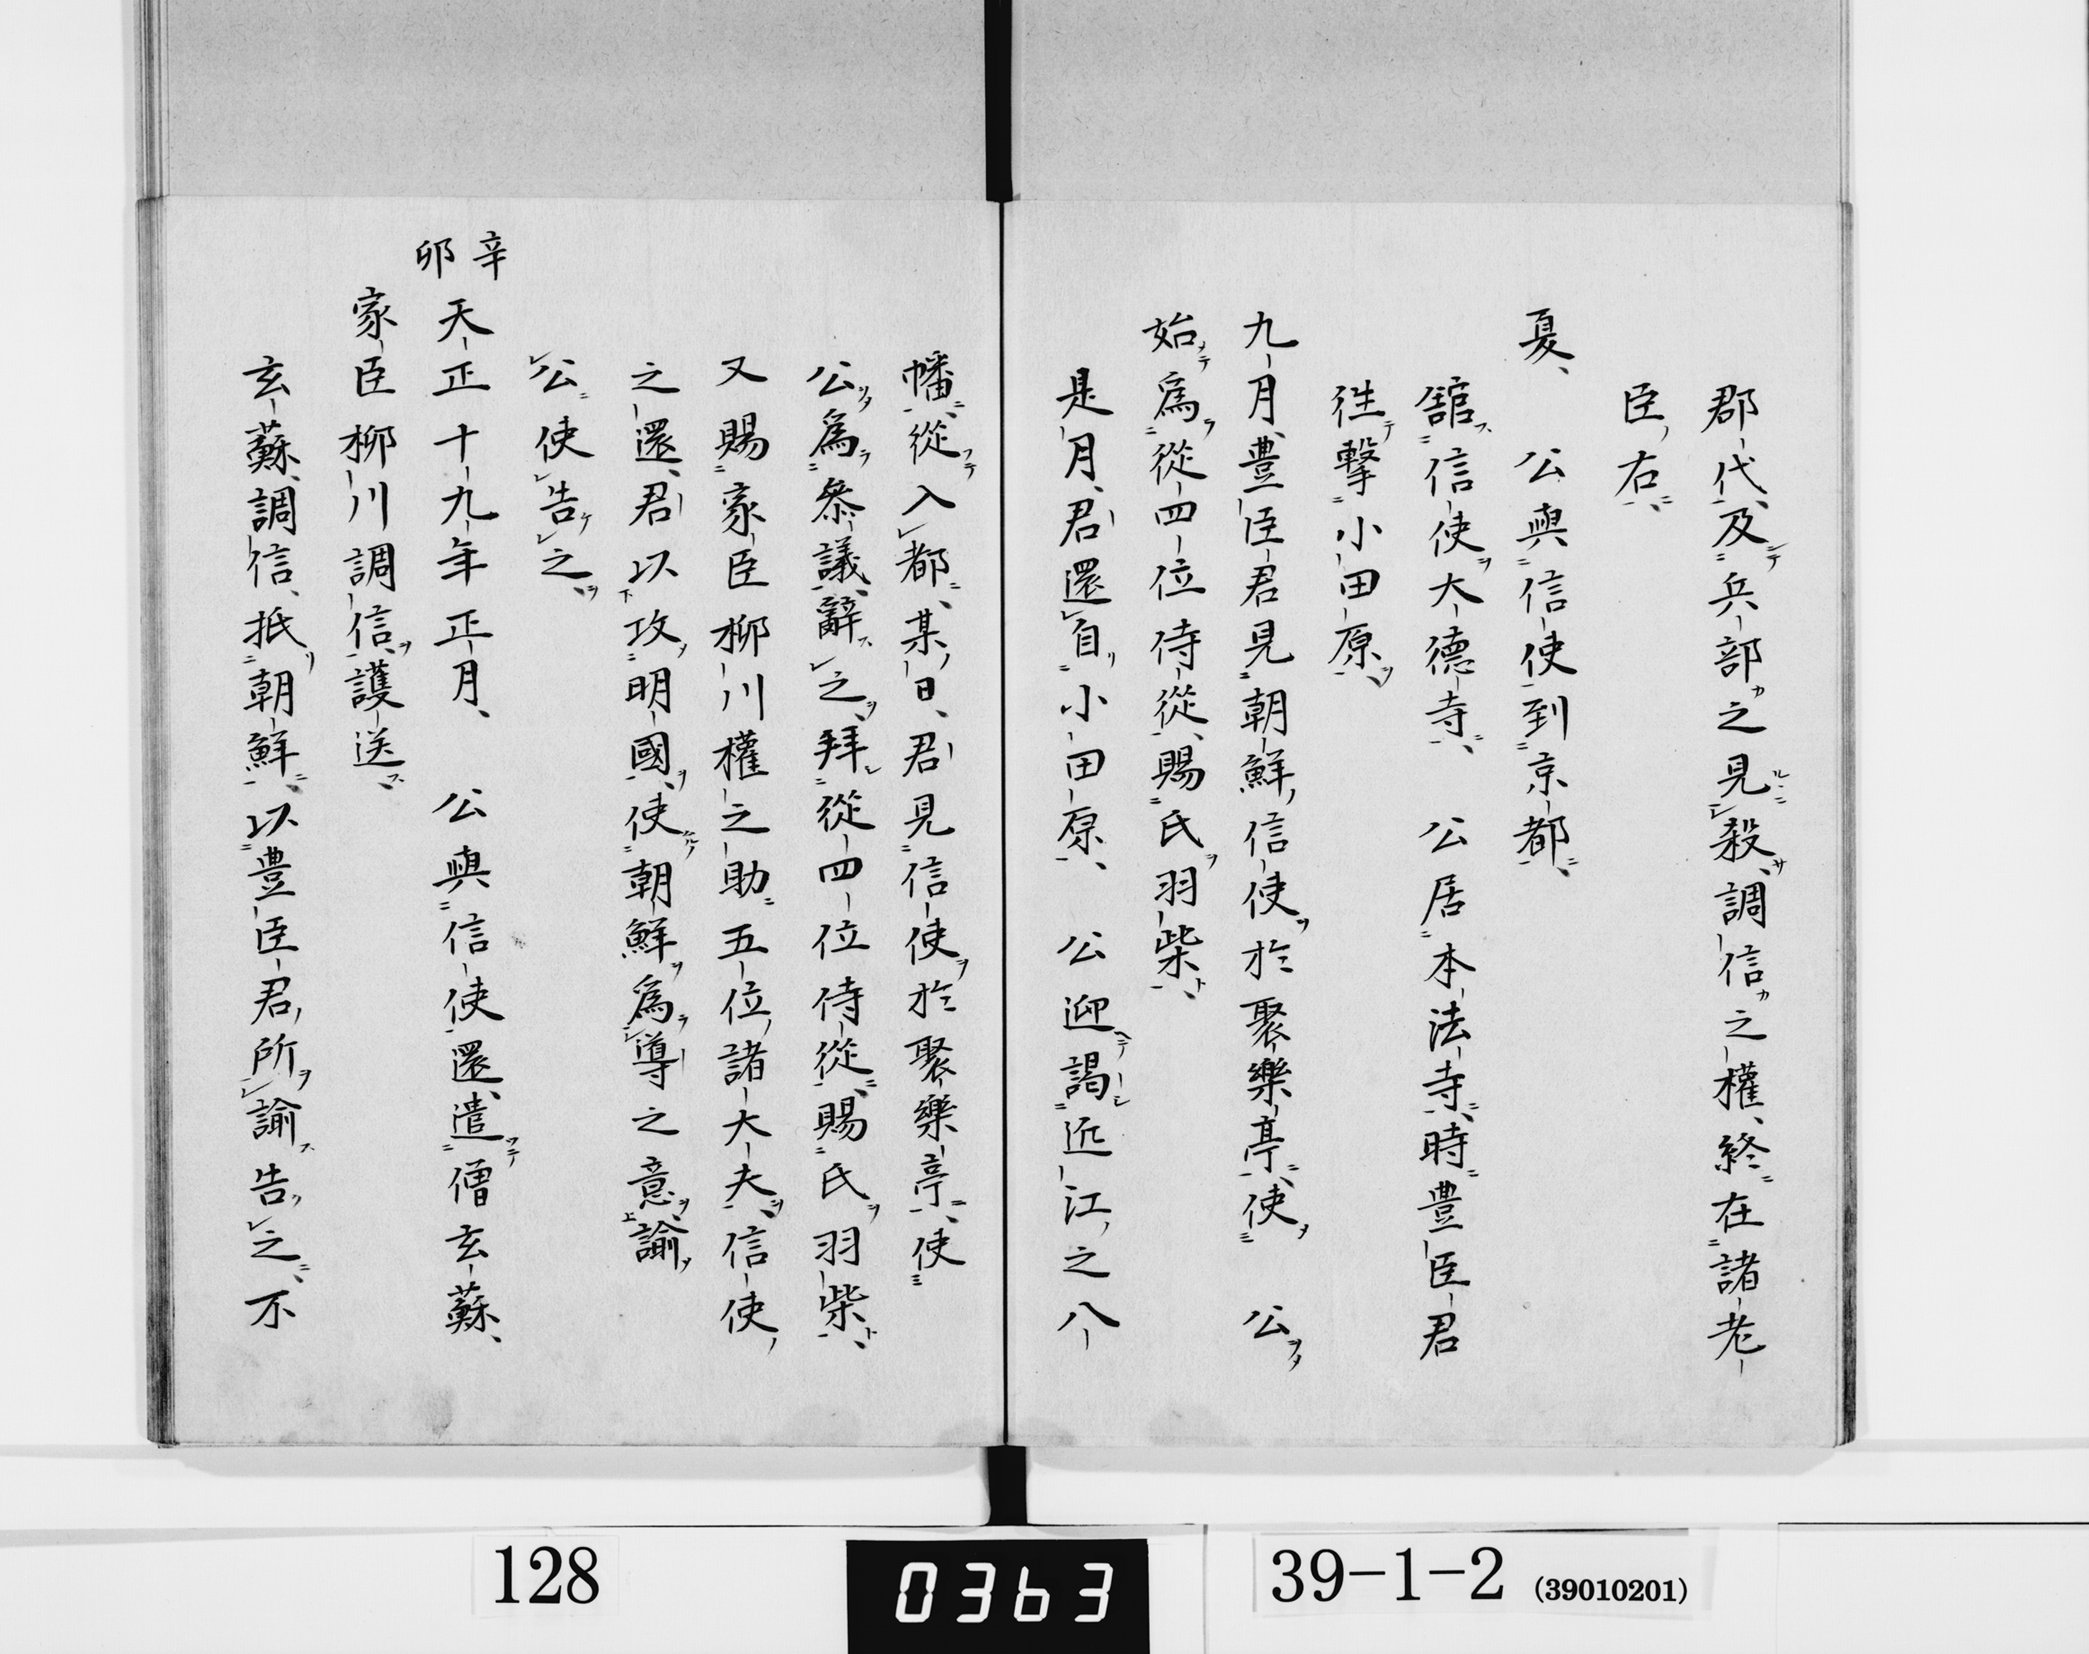 郡代及兵部之見殺調信之權終在諸老
臣右
夏　公與信使到京都
舘信使大德寺　公居本法寺時豊臣君
徃擊小田原
九月豊臣君見朝鮮信使於聚樂亭使　公
始爲從四位侍從賜氏羽柴
是月君還自小田原　公迎謁近江之八
幡從入都某日君見信使於聚樂亭使
公爲叅議辭之拜從四位侍從賜氏羽柴
又賜家臣柳川權之助五位諸大夫信使
之還君以攻明國使朝鮮爲導之意諭
公使告之
辛卯
天正十九年正月　公與信使還遣僧玄蘇
家臣柳川調信護送
玄蘇調信抵朝鮮以豊臣君所諭告之不
128
0363
39-1-2 (39010201)